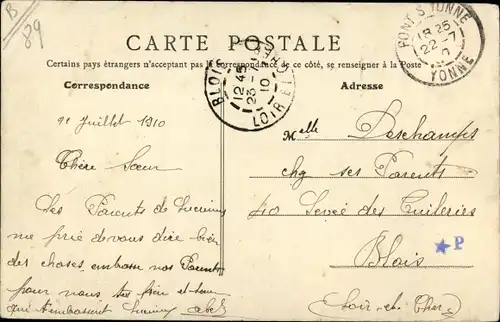 B
89
CARTE POSTALE
Certains pays étrangers n'acceptant pas la correspondance de ce côté, se renseigner à la Poste
Correspondance
Adresse
BLOIS
12 45
23
10
LOIR ET CHER
PONT S YONNE
18 25
22 - 7
10
YONNE
Juillet 1910
Chère Sœur
Les Parents de
me prie de vous dire bien
des choses, embrasse nos Parents
pour nous ton frère et sœur
qui t'embrassent Abel
Melle Deschamps
chg ses Parents
40 Levée des Tuileries
Blois
P
Loir-et-Cher